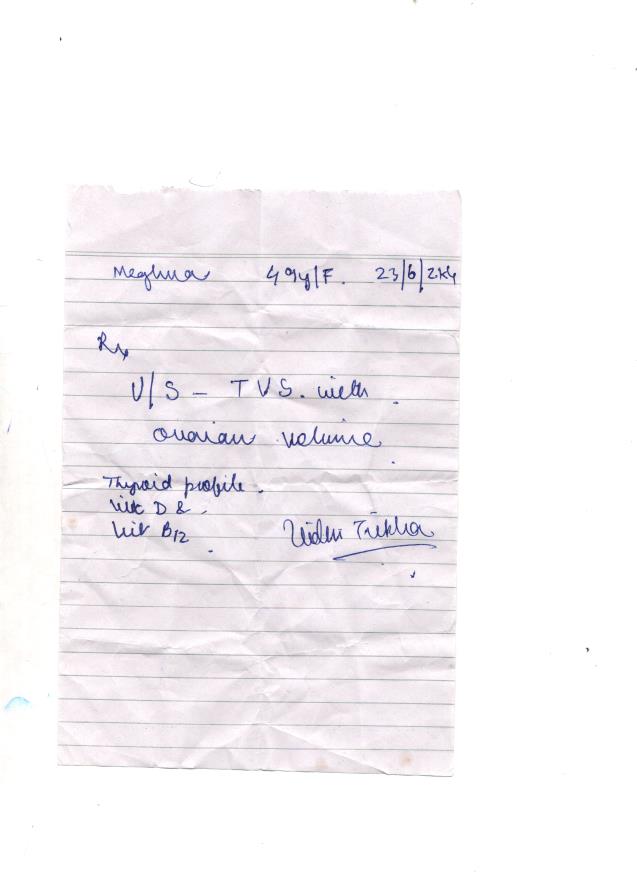 Meghna 49y/F. 23/6/2k4
Rx
U/S - TVS. with
ovarian volume
Thyroid profile.
Vit D &
Vit B12
Trikha